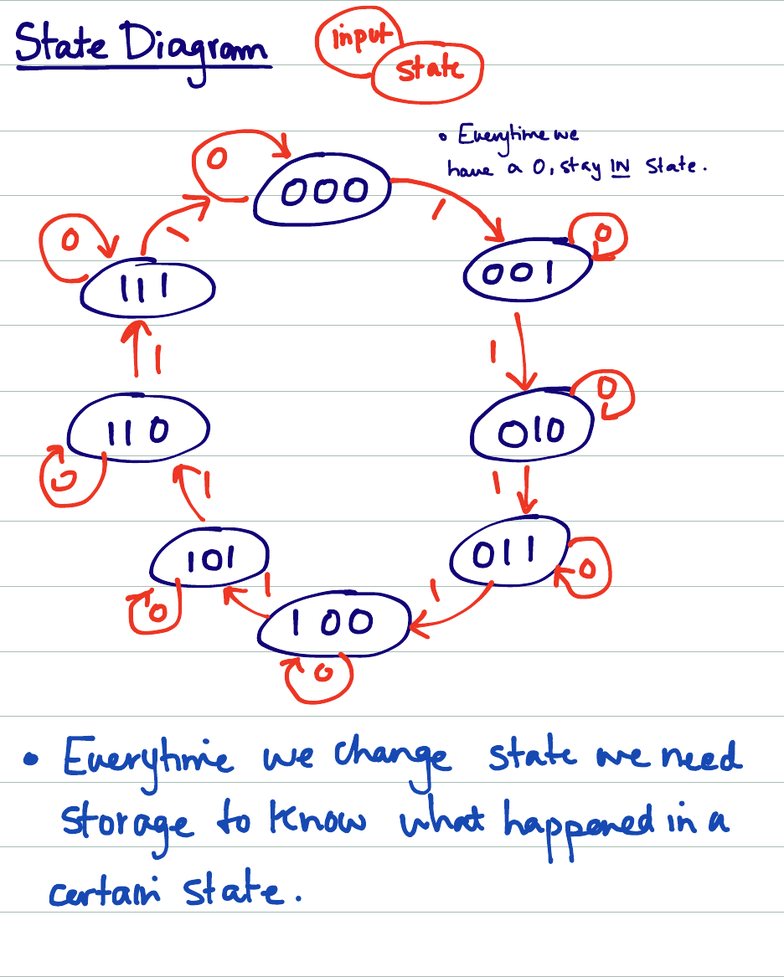 State Diagram
input
state
• Everytime we
have a 0, stay IN state.
0
000
1
0
111
1
001
0
1
1
110
0
010
0
1
1
0
101
011
0
1
1
0
100
0
• Everytime we change state we need
storage to know what happened in a
certain state.